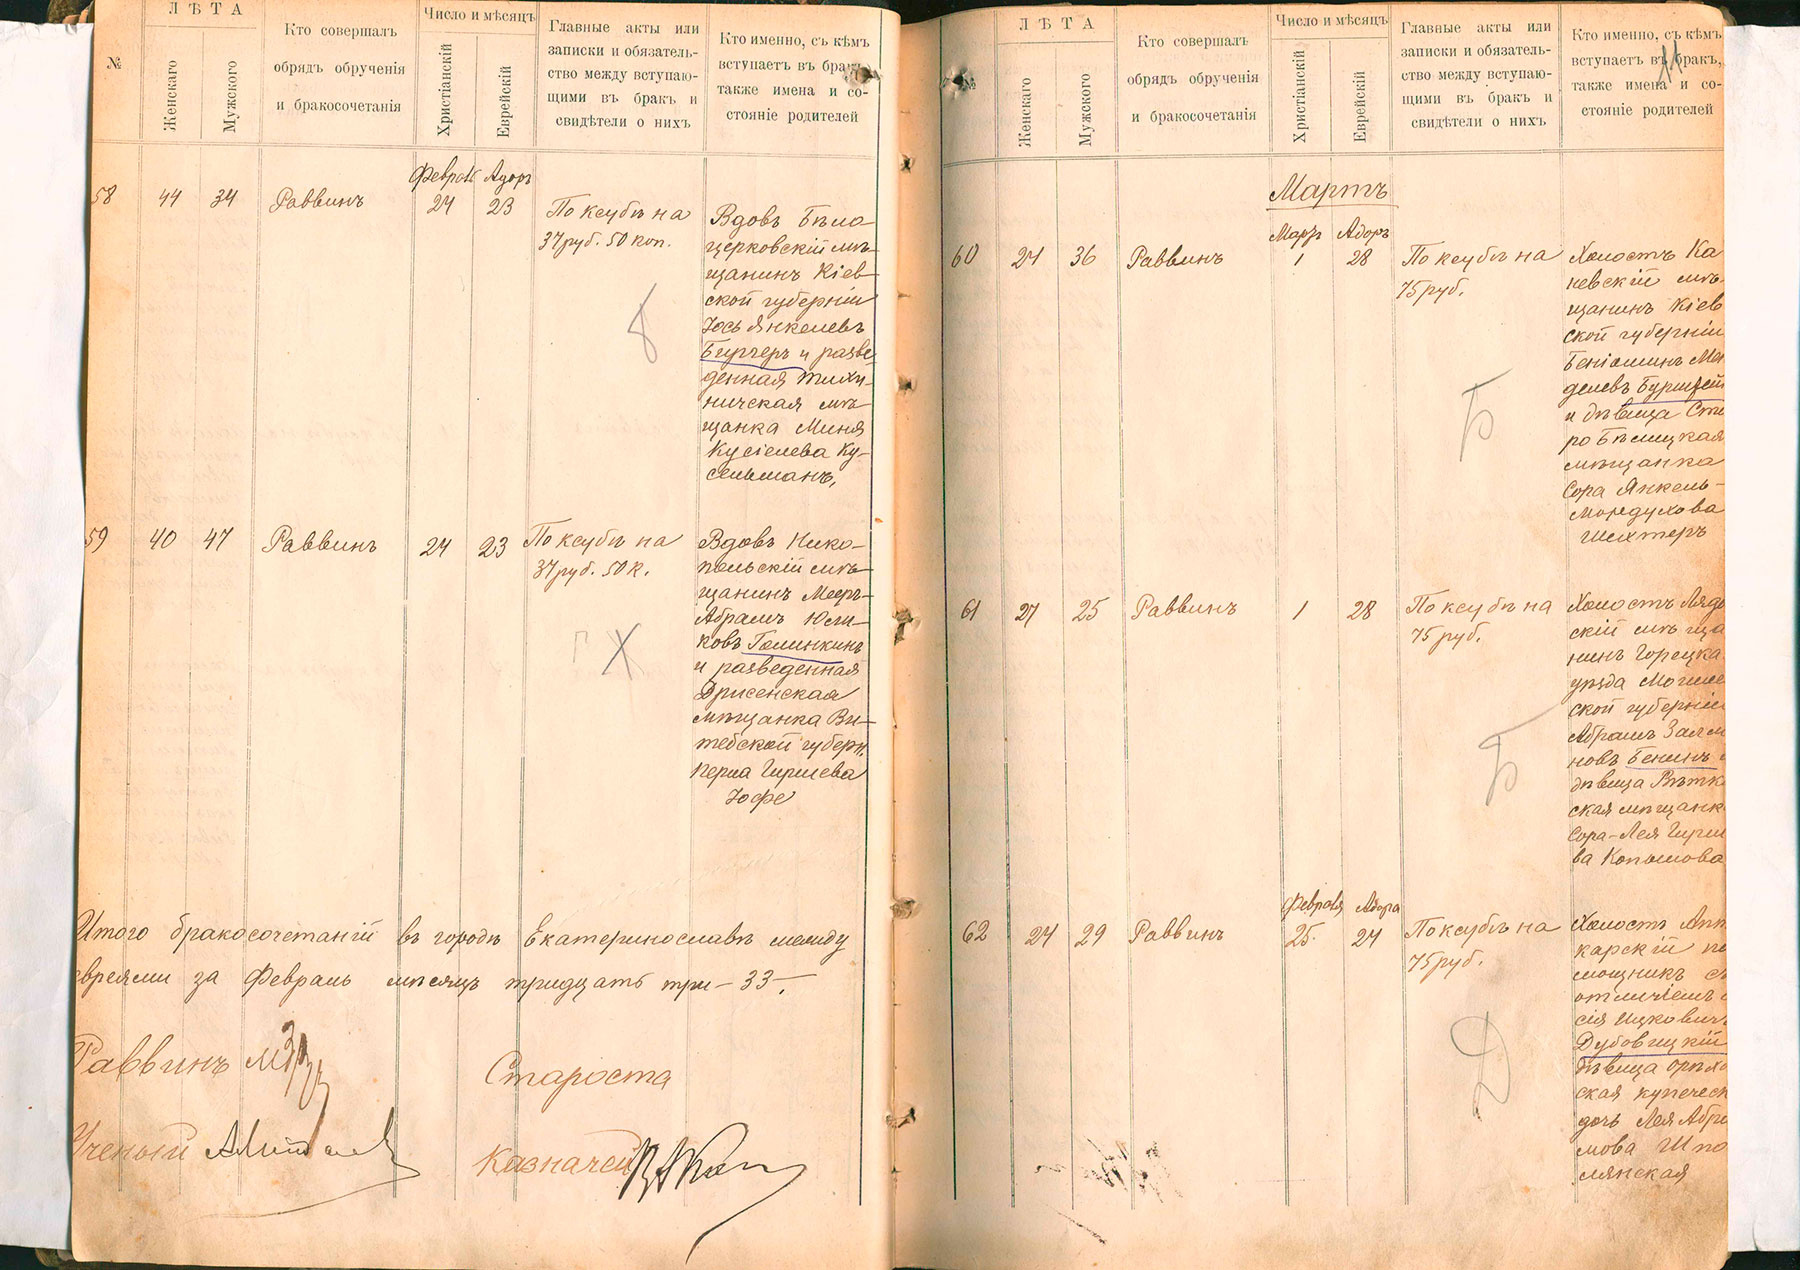 ЛѢТА
Число и мѣсяцъ
№
Женскаго
Мужского
Кто совершалъ
обрядъ обрученія
и бракосочетанія
Христіанскій
Еврейскій
Главные акты или
записки и обязатель-
ство между вступаю-
щими въ бракъ и
свидѣтели о нихъ
Кто именно, съ кѣмъ
вступаетъ въ бракъ,
также имена и со-
стояніе родителей
58
44
34
Раввинъ
24
23
По ксубѣ на
37 руб. 50 коп.
Вдовъ Бѣло-
церковскій мѣ-
щанинъ Кіев-
ской губерніи
Іось Янкелевъ
Бирчеръ и разве-
денная
ническая мѣ-
щанка Миня
Кусіелева Ку-
сельманъ,
Б
59
40
47
Раввинъ
24
23
По ксубѣ на
37 руб. 50 к.
Вдовъ Нико-
польскій мѣ-
щанинъ Мееръ-
Абрамъ Юли-
ковъ Голинкинъ
и разведенная
Дрисенская
мѣщанка Ви-
тебской губерн.
Гиршева
Іофе
Г Х
Итого бракосочетаній въ городѣ Екатеринославѣ между
евреями за Февраль мѣсяцъ тридцать три – 33 –.
Раввинъ
Староста
Ученый
Казначей
ЛѢТА
Число и мѣсяцъ
№
Женскаго
Мужского
Кто совершалъ
обрядъ обрученія
и бракосочетанія
Христіанскій
Еврейскій
Главные акты или
записки и обязатель-
ство между вступаю-
щими въ бракъ и
свидѣтели о нихъ
Кто именно, съ кѣмъ
вступаетъ въ бракъ,
также имена и со-
стояніе родителей
11
Мартъ
Мартъ Адоръ
60
24
36
Раввинъ
1
28
По ксубѣ на
75 руб.
Холостъ Ка
невскій мѣ-
щанинъ Кіев
ской губерніи
Беніоминъ Мен
делевъ
и дѣвица Ста
ро Бѣлицкая
мѣщанка
Сора Янкель-
Мордухова
Шехтеръ
Б
61
27
25
Раввинъ
1
28
По ксубѣ на
75 руб.
Холостъ Лядо
скій мѣща
нинъ Горецка
уѣзда Могиле
ской губерніи
Абрамъ Залма
новъ Бенинъ
дѣвица Вѣтк
ская мѣщанк
Сора-Лея Гирш
ва Копылова
Б
Февраля Адора
62
24
29
Раввинъ
25
24
По ксубѣ на
75 руб.
Холостъ Апт
карскій по
мощникъ съ
отличіемъ
сія Ицковичъ
Дубовицкій
дѣвица Орѣхо
ская купеческ
дочь Лея Абра
мова Шпо
лянская
Д